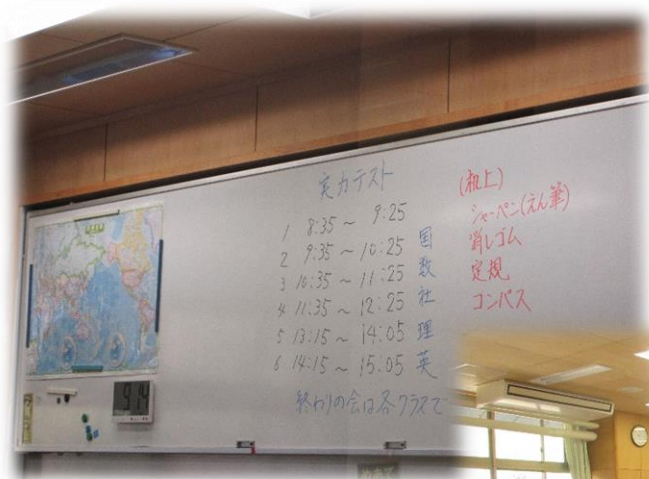 実力テスト
1 8:35 ～ 9:25
2 9:35 ～ 10:25 国
3 10:35 ～ 11:25 数
4 11:35 ～ 12:25 社
5 13:15 ～ 14:05 理
6 14:15 ～ 15:05 英
終わりの会は各クラスで
(机上)
シャーペン(えん筆)
消しゴム
定規
コンパス